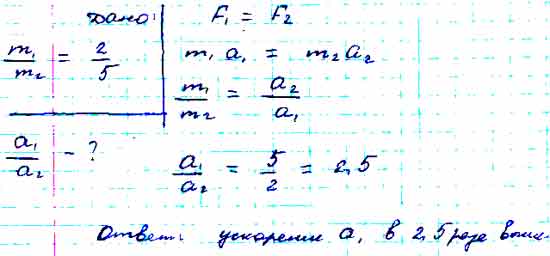 Дано:
m₁/m₂ = 2/5
a₁/a₂ - ?
F₁ = F₂
m₁ a₁ = m₂ a₂
m₁/m₂ = a₂/a₁
a₁/a₂ = 5/2 = 2,5
Ответ: ускорение a₁ в 2,5 раза